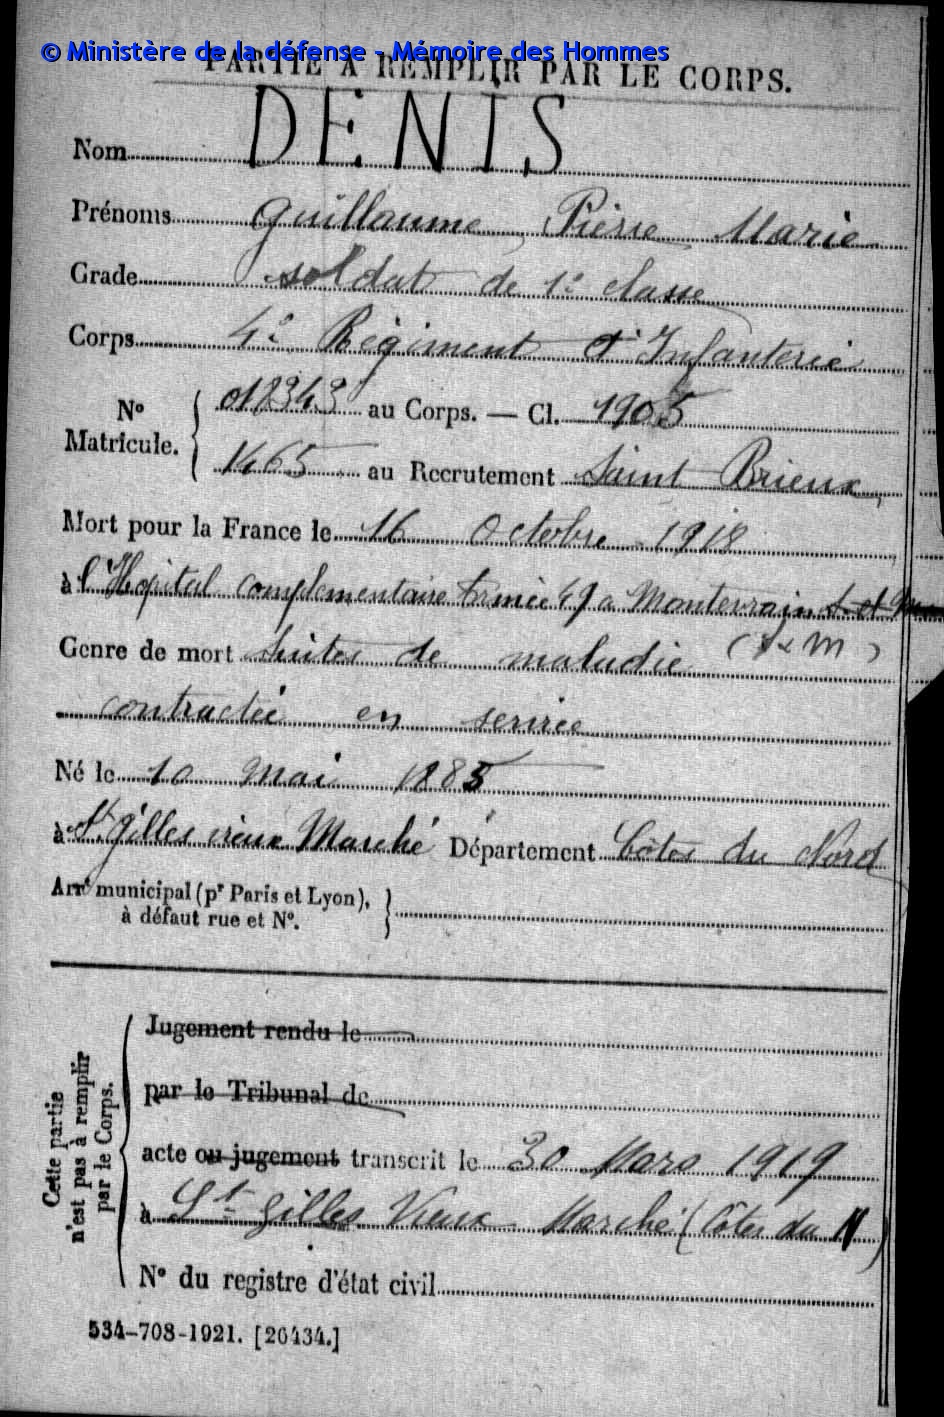 © Ministère de la défense - Mémoire des Hommes
PARTIE À REMPLIR PAR LE CORPS.
Nom DENIS
Prénoms Guillaume, Pierre Marie
Grade soldat de 1e classe
Corps 4e Régiment d'Infanterie
No Matricule. { 018343 au Corps. — Cl. 1905
1465 au Recrutement Saint Brieux
Mort pour la France le 16 Octobre 1918
à l'Hopital complementaire Armée 49 a Montevrain S. et
Genre de mort Suites de maladie (S & M)
contractée en service
Né le 10 Mai 1885
à St. Gilles vieux Marché Département Côtes du Nord
Arrt municipal (pr Paris et Lyon),
à défaut rue et No. }
Cette partie
n'est pas à remplir
par le Corps.
Jugement rendu le
par le Tribunal de
acte ou jugement transcrit le 30 Mars 1919
à St Gilles Vieux Marché (Côtes du N)
No du registre d'état civil
534-708-1921. [26434.]